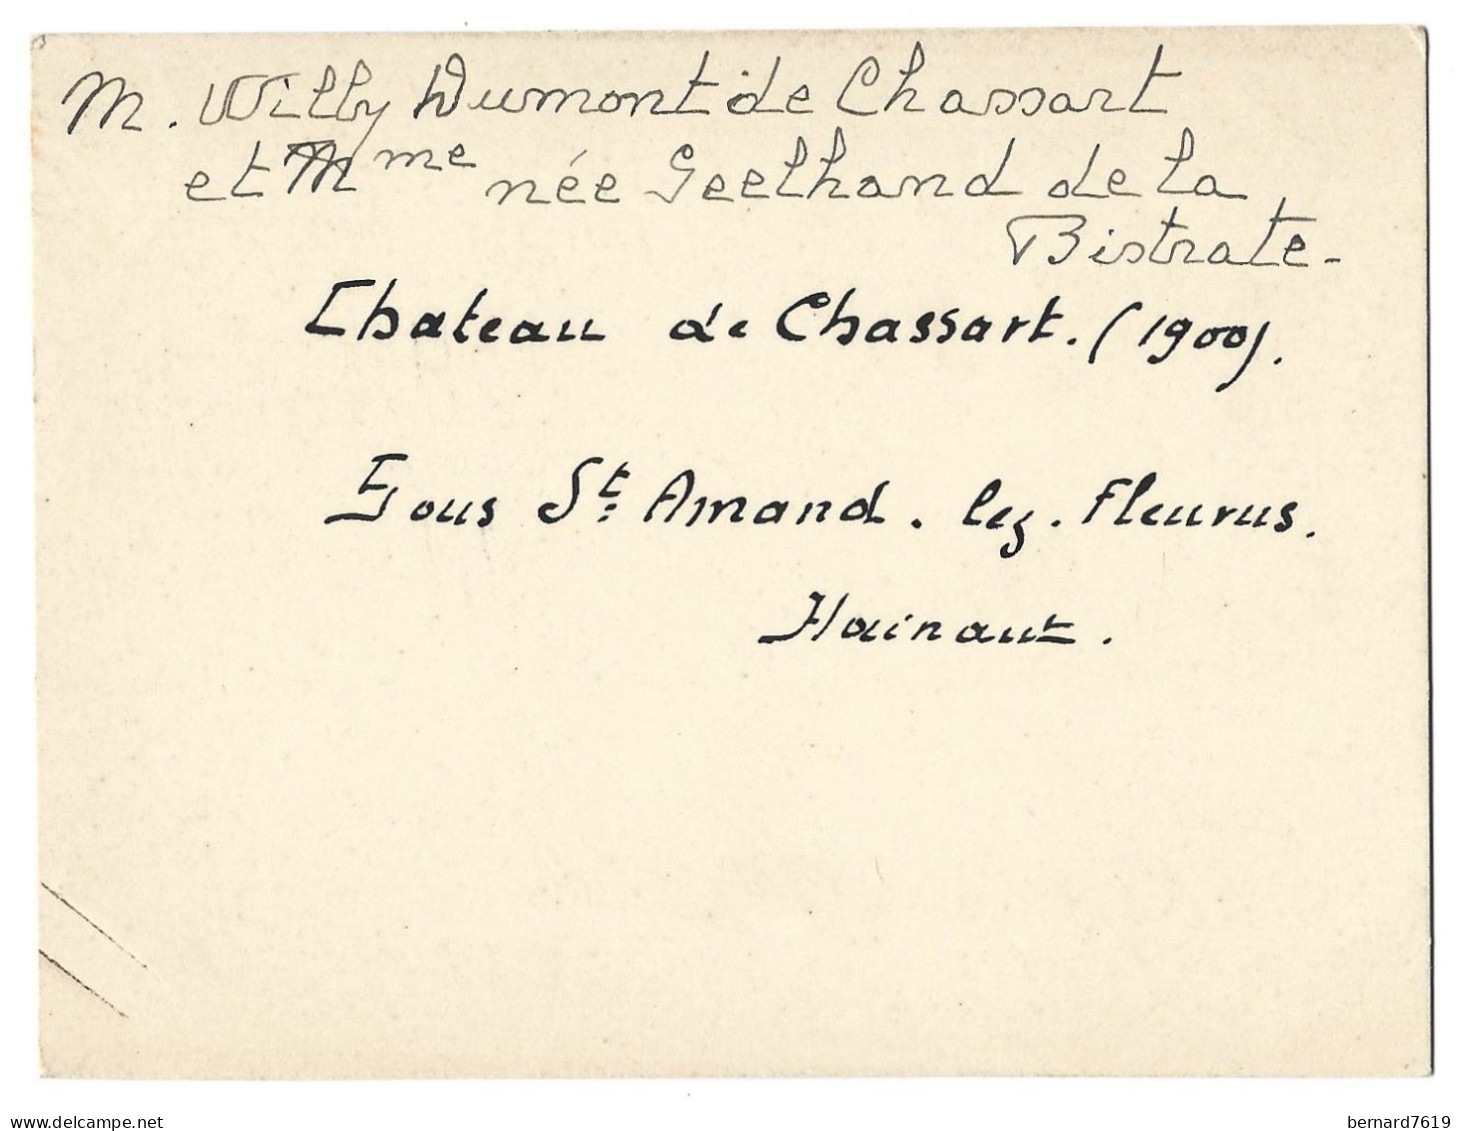 M. Willy Dumont de Chassart
et Mme née Geelhand de la
Bistrate-
Chateau de Chassart. (1900).
Sous St: Amand. lez. Fleurus.
Hainaut.
delcampe.net
bernard7619